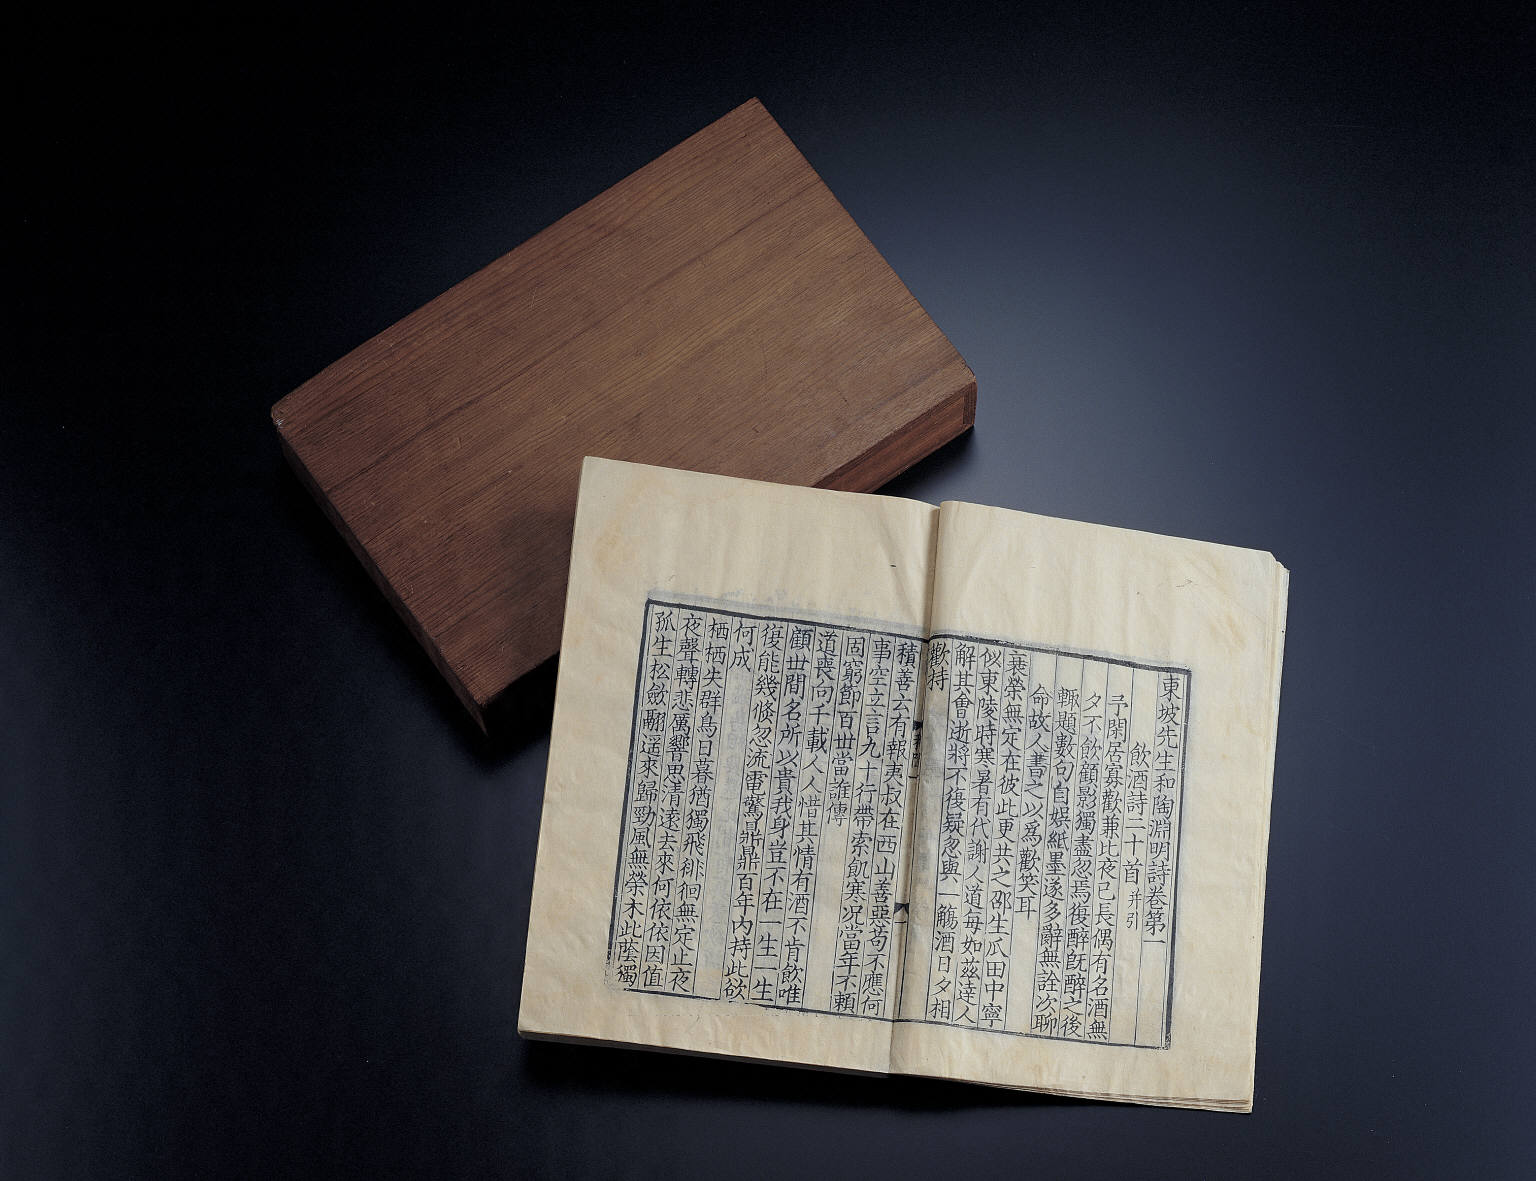 東坡先生和陶淵明詩卷第一
飲酒詩二十首并引
予閑居寡歡兼比夜已長偶有名酒無
夕不飲顧影獨盡忽焉復醉既醉之後
輒題數句自娛紙墨遂多辭無詮次聊
命故人書之以為歡笑耳
衰榮無定在彼此更共之邵生瓜田中寧
似東陵時寒暑有代謝人道每如茲達人
解其會逝將不復疑忽與一觴酒日夕相
歡持
積善云有報夷叔在西山善惡苟不應何
事空立言九十行帶索飢寒况當年不賴
固窮節百世當誰傳
道喪向千載人人惜其情有酒不肯飲唯
顧世間名所以貴我身豈不在一生一生
復能幾倏忽流電驚鼎鼎百年內持此欲
何成
栖栖失群鳥日暮猶獨飛徘徊無定止夜
夜聲轉悲厲響思清遠去來何依依因值
孤生松斂翮遥來歸勁風無榮木此蔭獨